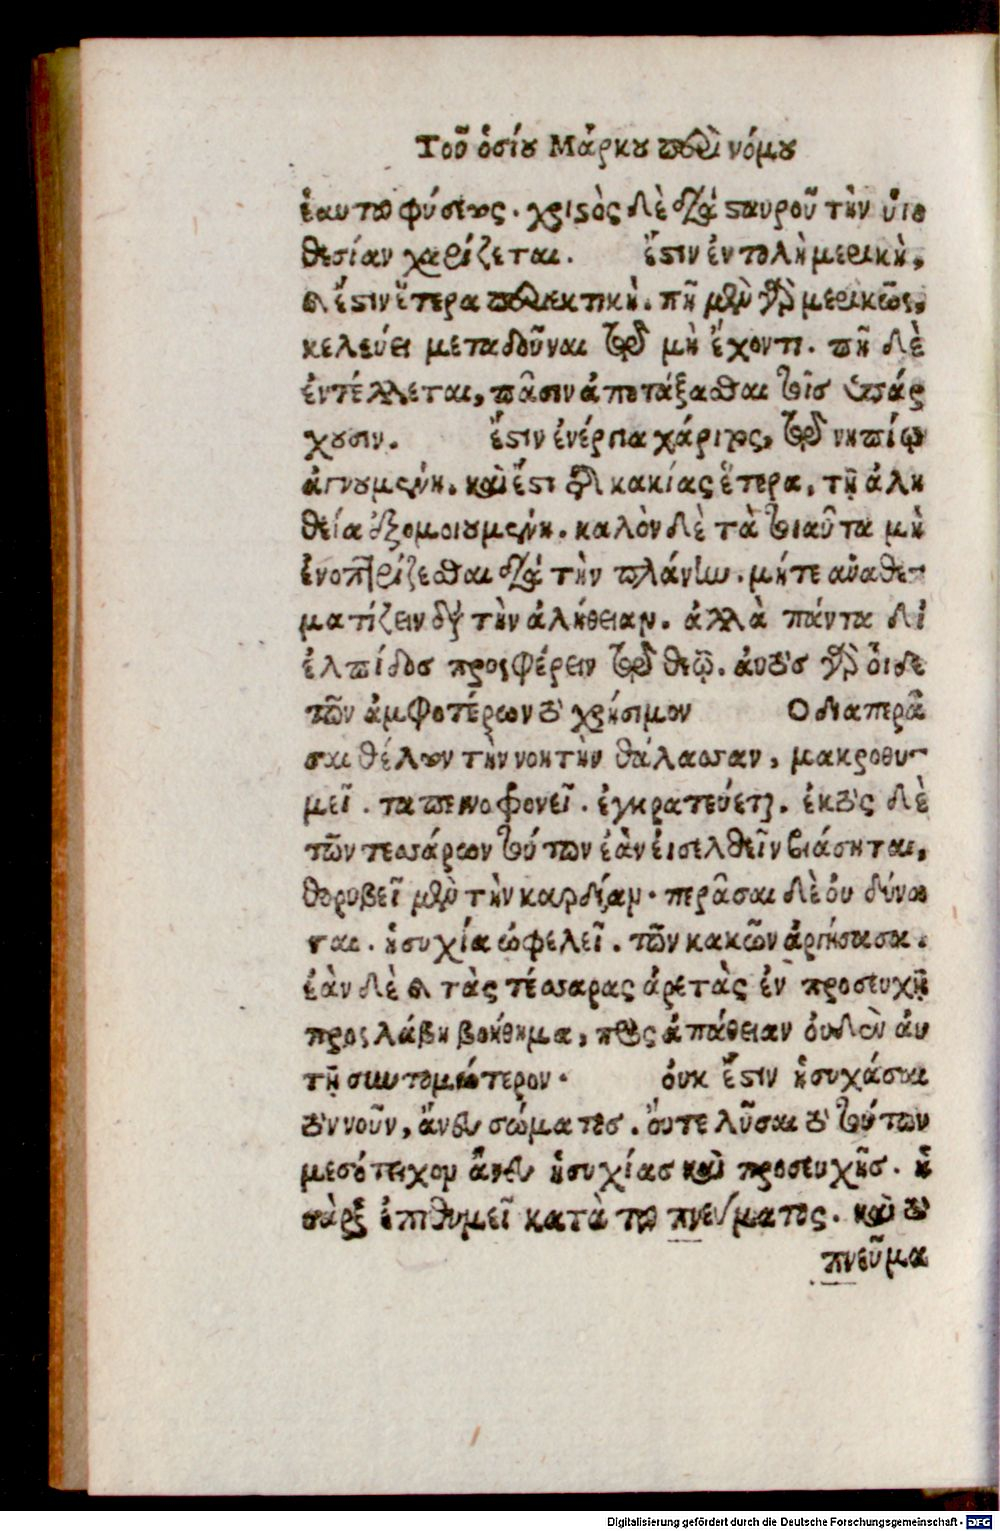 Τοῦ ὁσίου Μάρκου περὶ νόμου
ἑαυτοῦ φύσεως. χριστὸς δὲ διὰ σταυροῦ τὴν υἱο
θεσίαν χαρίζεται. ἔστιν ἐντολὴ μερικὴ,
καὶ ἔστιν ἕτερα περιεκτικὴ. πῆ μὲν γὰρ μερικῶς,
κελεύει μεταδοῦναι τῷ μὴ ἔχοντι. πῆ δὲ
ἐντέλλεται, πᾶσιν ἀποτάξασθαι τοῖς ὑπάρ
χουσιν. ἔστιν ἐνέργεια χάριτος, τῷ νηπίῳ
ἀγνουμένη. καὶ ἔστι καὶ κακίας ἑτερα, τῇ ἀλη
θεία ἐξομοιουμένη. καλὸν δὲ τὰ τοιαῦτα μὴ
ἐνοπτρίζεσθαι διὰ τὴν πλάνην. μήτε ἀναθε-
ματίζειν διὰ τὴν ἀλήθειαν. ἀλλὰ πάντα δι
ἐλπίδος προσφέρειν τῷ θεῷ. ἀυτὸς γὰρ ὁιδε
τῶν ἀμφοτέρων τὸ χρήσιμον Ο διαπερᾶ
σαι θέλων τὴν νοητὴν θάλασσαν, μακροθυ-
μεῖ. ταπεινοφονεῖ. ἐγκρατεύεται. ἐκτὸς δὲ
τῶν τεσσάρων τούτων ἐὰν εἰσελθεῖν βιάσηται,
θορυβεῖ μὲν τὴν καρδίαν. περᾶσαι δὲ ὀυ δύνα
ται. ἡσυχία ὠφελεῖ. τῶν κακῶν ἀργήσασα.
ἐὰν δὲ καὶ τὰς τέσσαρας ἀρετὰς ἐν προσευχῇ
προσλάβη βοήθημα, πρὸς ἀπάθειαν ὀυδὲν ἀυ
τῇ συντομώτερον. ὀυκ ἔστιν ἡσυχάσαι
τὸν νοῦν, ἄνευ σώματος. ὄυτε λῦσαι τὸ τούτων
μεσότειχον ἄνευ ἡσυχίας καὶ προσευχῆς. ἡ
σὰρξ ἐπιθυμεῖ κατὰ τοῦ πνεύματος. καὶ τὸ
πνεῦμα
Digitalisierung gefördert durch die Deutsche Forschungsgemeinschaft - DFG